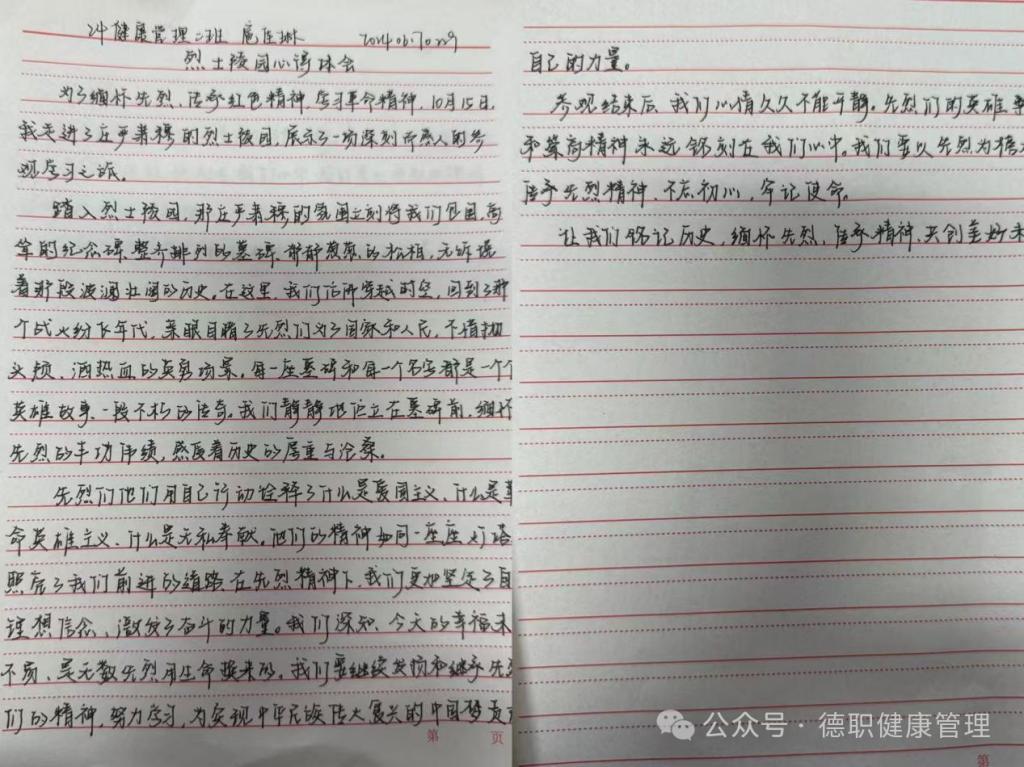 24健康管理二班 扈佳琳 20240670229
烈士陵园心得体会
为了缅怀先烈、传承红色精神、学习革命精神,10月15日,
我走进了庄严肃穆的烈士陵园,展示了一场深刻而感人的参
观学习之旅。
踏入烈士陵园,那庄严肃穆的氛围立刻将我们包围,高
耸的纪念碑,整齐排列的墓碑,那静葱葱的松柏,无诉说
着那段波澜壮阔的历史。在这里,我们信所穿越时空,回到了那
个战火纷飞年代,亲眼目睹了先烈们为了国家和人民,不惜抛
头颅、洒热血的英勇场景,每一座墓碑和每一个名字都是一个个
英雄故事,一段不朽的传奇。我们静静地伫立在墓碑前,缅怀
先烈的丰功伟绩,感受着历史的厚重与沧桑。
先烈们他们用自己行动诠释了什么是爱国主义、什么是革
命英雄主义、什么是无私奉献。他们的精神如同一座座灯塔
照亮了我们前进的道路,在先烈精神下,我们更加坚定了自
理想信念、激发了奋斗的力量。我们深知,今天的幸福来
不易,是无数先烈用生命换来的,我们要继续发扬和继承先烈
们的精神,努力学习,为实现中华民族伟大复兴的中国梦贡献
第 页
自己的力量。
参观结束后,我们心情久久不能平静。先烈们的英雄事
和崇高精神永远铭刻在我们心中。我们要以先烈为榜
传承先烈精神、不忘初心,牢记使命。
让我们铭记历史,缅怀先烈,传承精神,共创美好未
公众号·德职健康管理
第